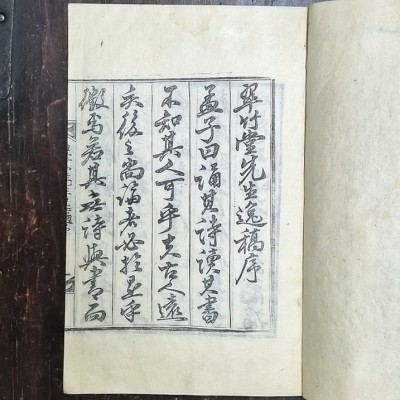 翠竹堂先生逸稿序
孟子曰誦其詩讀其書
不知其人可乎夫古人遠
矣後之尚論者必於是乎
徵焉若其在詩與書而